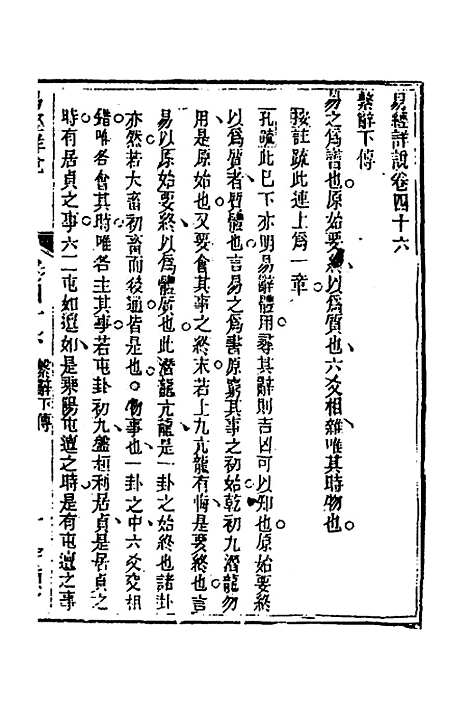 易經詳說卷四十六
繫辭下傳
易之爲書也原始要終以爲質也六爻相雜唯其時物也
按註疏此連上爲一章
孔疏此已下亦明易辭體用尋其辭則吉凶可以知也原始要終
以爲質者質體也言易之爲書原窮其事之初始乾初九潛龍勿
用是原始也又要會其事之終末若上九亢龍有悔是要終也言
易以原始要終以爲體質也此潛龍亢龍是一卦之始終也諸卦
亦然若大畜初畜而後通皆是也物事也一卦之中六爻交相
雜唯各會其時唯各主其事若屯卦初九盤桓利居貞是居貞之
時有居貞之事六二屯如邅如是乘陽屯邅之時是有屯邅之事
繫辭下傳